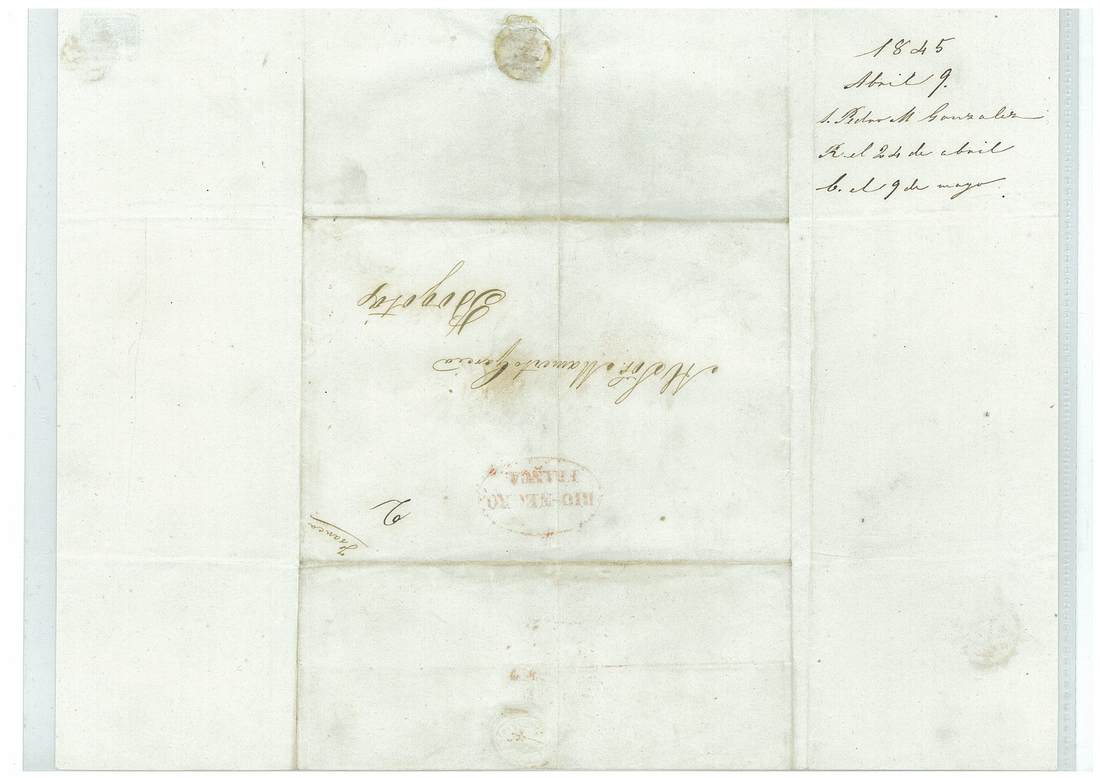 1845
Abril 9.
S. Pedro M Gonzalez
R. el 24 de abril
C. el 9 de mayo.
Al Sor. Mamerto Garcia
Bogotá
RIO-NEGRO
FRANCA
2
Franca